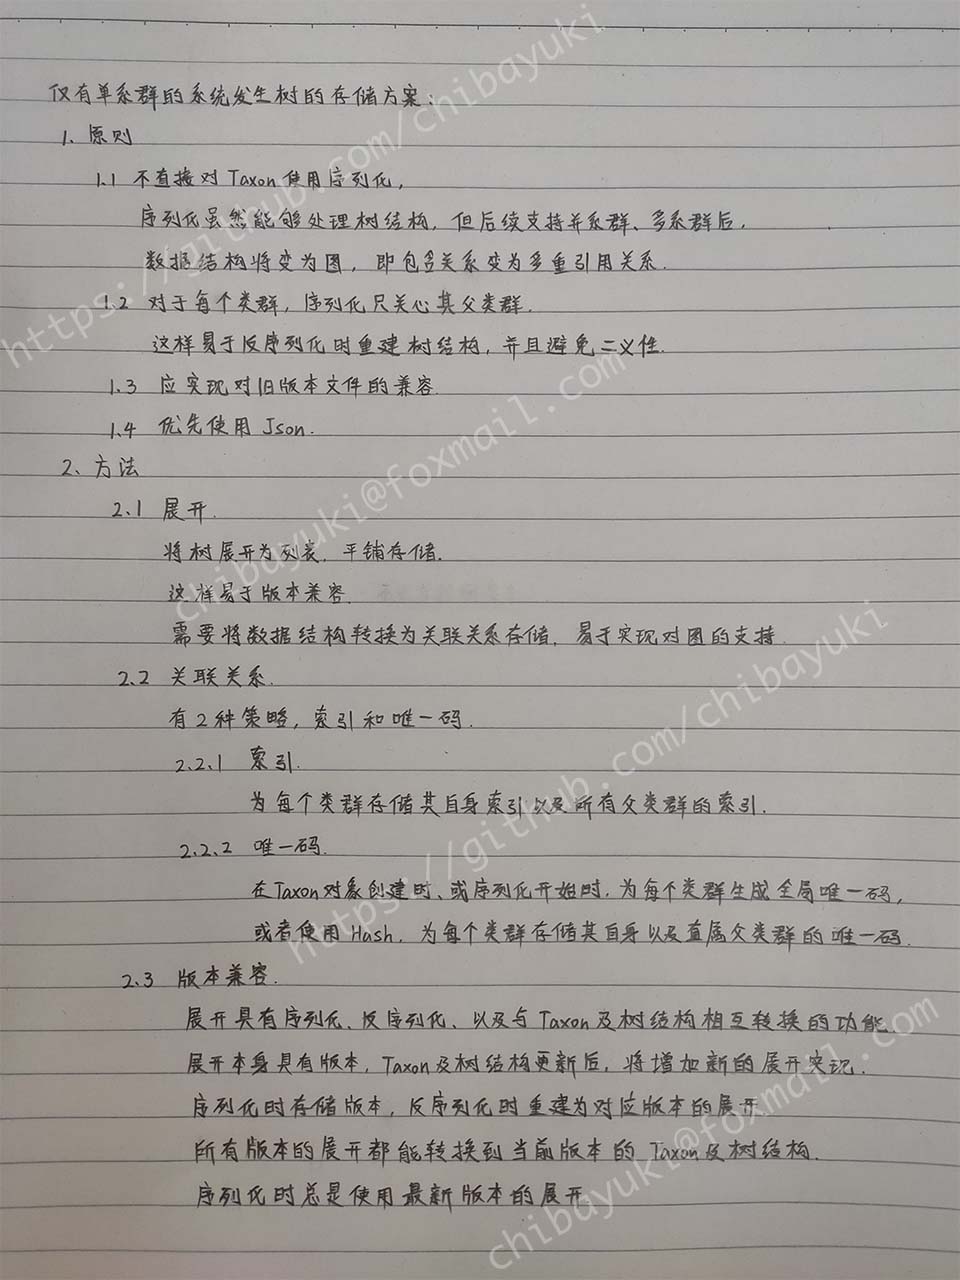 仅有单系群的系统发生树的存储方案：
1、原则
1.1 不直接对Taxon使用序列化，
序列化虽然能够处理树结构，但后续支持并系群、多系群后，
数据结构将变为图，即包含关系变为多重引用关系.
1.2 对于每个类群，序列化只关心其父类群.
这样易于反序列化时重建树结构，并且避免二义性.
1.3 应实现对旧版本文件的兼容.
1.4 优先使用Json.
2、方法
2.1 展开.
将树展开为列表，平铺存储.
这样易于版本兼容.
需要将数据结构转换为关联关系存储，易于实现对图的支持.
2.2 关联关系.
有2种策略，索引和唯一码.
2.2.1 索引.
为每个类群存储其自身索引以及所有父类群的索引.
2.2.2 唯一码.
在Taxon对象创建时、或序列化开始时，为每个类群生成全局唯一码，
或者使用Hash，为每个类群存储其自身以及直属父类群的唯一码.
2.3 版本兼容.
展开具有序列化、反序列化、以及与Taxon及树结构相互转换的功能.
展开本身具有版本，Taxon及树结构更新后，将增加新的展开实现.
序列化时存储版本，反序列化时重建为对应版本的展开.
所有版本的展开都能转换到当前版本的Taxon及树结构.
序列化时总是使用最新版本的展开.
https://github.com/chibayuki
chibayuki@foxmail.com
https://github.com/chibayuki
chibayuki@foxmail.com